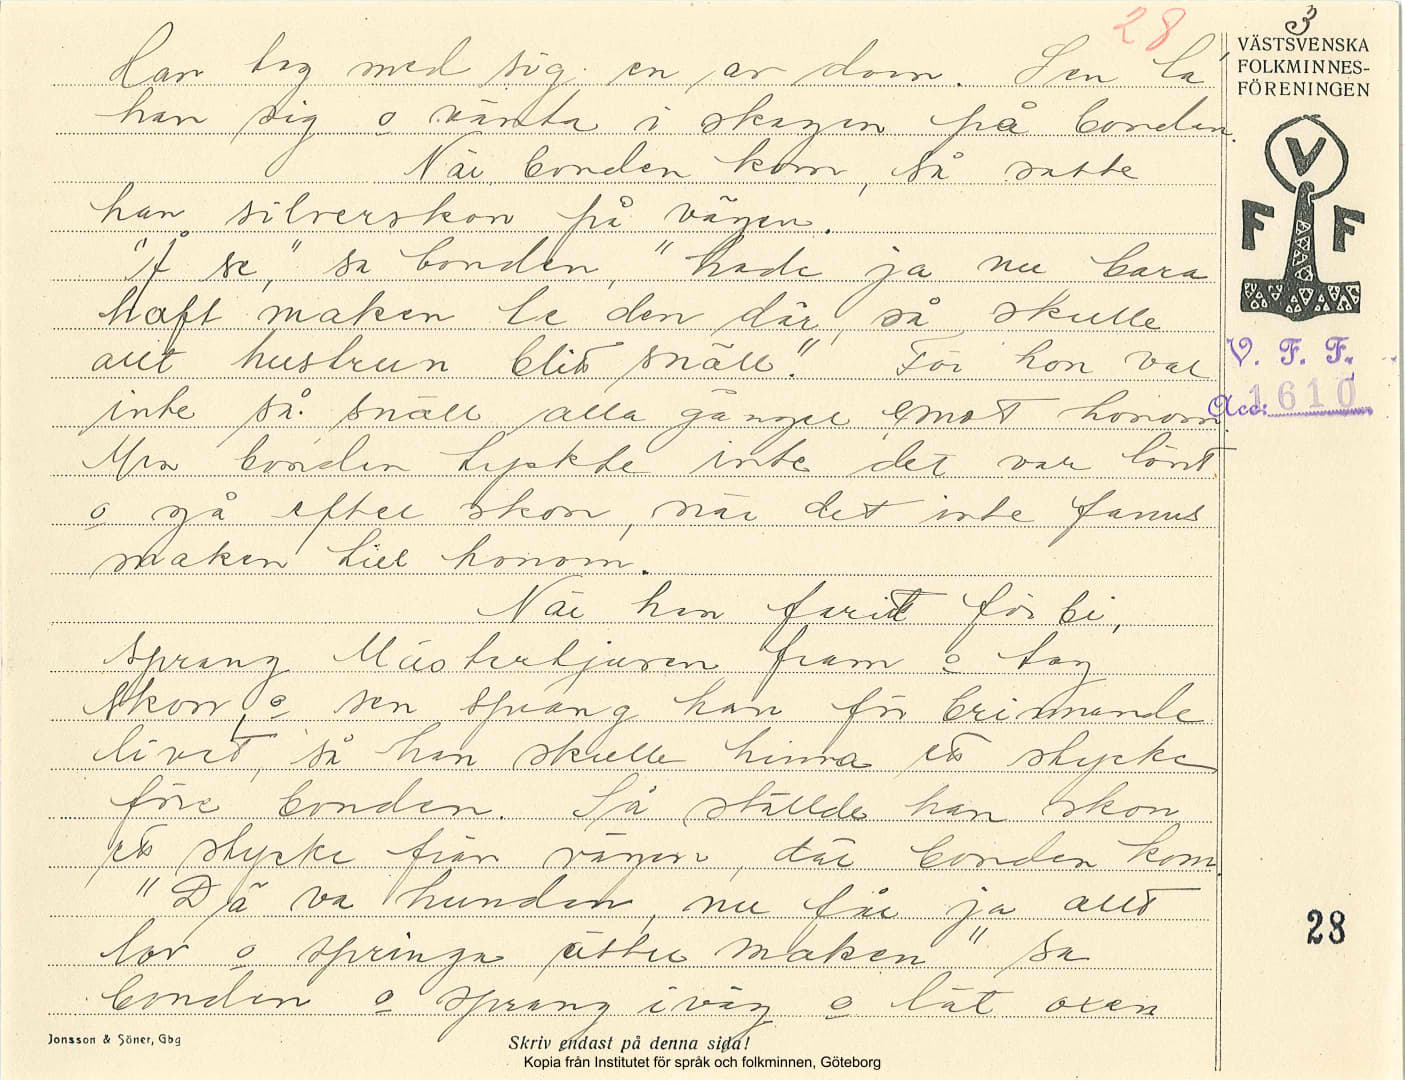 28
3
VÄSTSVENSKA
FOLKMINNES-
FÖRENINGEN
V
F F
V. F. F.
Acc: 1610
Han tog med sig en av dom. Sen la
han sig o vänta i skogen på bonden.
När bonden kom, så satte
han silverskon på vägen.
"Å se," sa bonden, "hade ja nu bara
haft maken te den där, så skulle
allt hustrun blitt snäll." För hon var
inte så snäll alla gånger emot honom.
Men bonden tyckte inte det var lönt
o gå efter skon, när det inte fanns
maken till honom.
När han farit förbi,
sprang Mästertjuven fram o tog
skon, o sen sprang han för brinnande
livet, så han skulle hinna ett stycke
före bonden. Så ställde han skon
ett stycke från vägen, där bonden kom.
"Dä va hunden, nu får ja allt
lov o springa ätter maken" sa
bonden o sprang iväg o lät oxen
28
Jonsson & Söner, Gbg
Skriv endast på denna sida!
Kopia från Institutet för språk och folkminnen, Göteborg